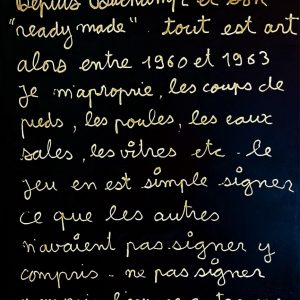 Depuis Duchamp et son
"ready made". tout est art
alors entre 1960 et 1963
Je m'aproprie, les coups de
pieds, les poules, les eaux
sales, les vitres etc. le
jeu en est simple signer
ce que les autres
n'avaient pas signer y
compris. ne pas signer